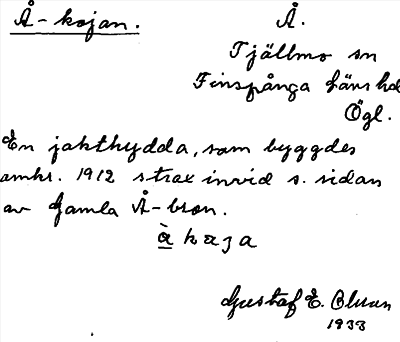 Å-kojan.
Å.
Tjällmo sn
Finspånga läns hd
Ögl.
En jakthydda, som byggdes
omkr. 1912 strax invid s. sidan
av Gamla Å-bron.
à kaja
Gustaf E. Olsson
1933